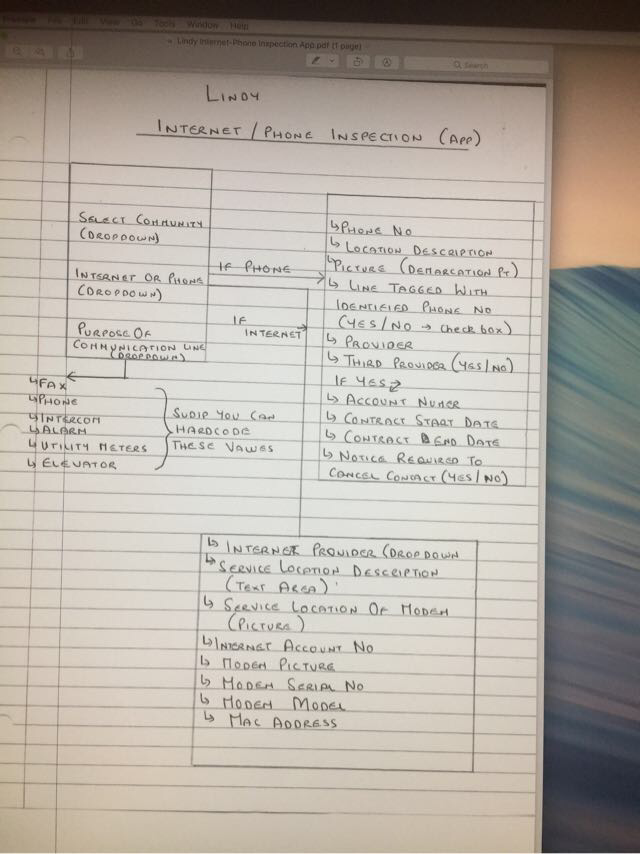 Preview File Edit View Go Tools Window Help
Lindy Internet-Phone Inspection App.pdf (1 page)
Search
LINDY
INTERNET / PHONE INSPECTION (APP)
SELECT COMMUNITY
(DROPDOWN)
INTERNET OR PHONE
(DROPDOWN)
PURPOSE OF
COMMUNICATION LINE
(DROPDOWN)
IF PHONE
IF
INTERNET
↳ FAX
↳ PHONE
↳ INTERCOM
↳ ALARM
↳ UTILITY METERS
↳ ELEVATOR
SUDIP YOU CAN
HARDCODE
THESE VALUES
↳ PHONE NO
↳ LOCATION DESCRIPTION
↳ PICTURE (DEMARCATION PT)
↳ LINE TAGGED WITH
IDENTIFIED PHONE NO
(YES/NO → check box)
↳ PROVIDER
↳ THIRD PROVIDER (YES/NO)
IF YES
↳ ACCOUNT NUMER
↳ CONTRACT START DATE
↳ CONTRACT END DATE
↳ NOTICE REQUIRED TO
CANCEL CONTACT (YES/NO)
↳ INTERNET PROVIDER (DROPDOWN
↳ SERVICE LOCATION DESCRIPTION
(TEXT AREA)
↳ SERVICE LOCATION OF MODEM
(PICTURE)
↳ INTERNET ACCOUNT NO
↳ MODEM PICTURE
↳ MODEM SERIAL NO
↳ MODEM MODEL
↳ MAC ADDRESS